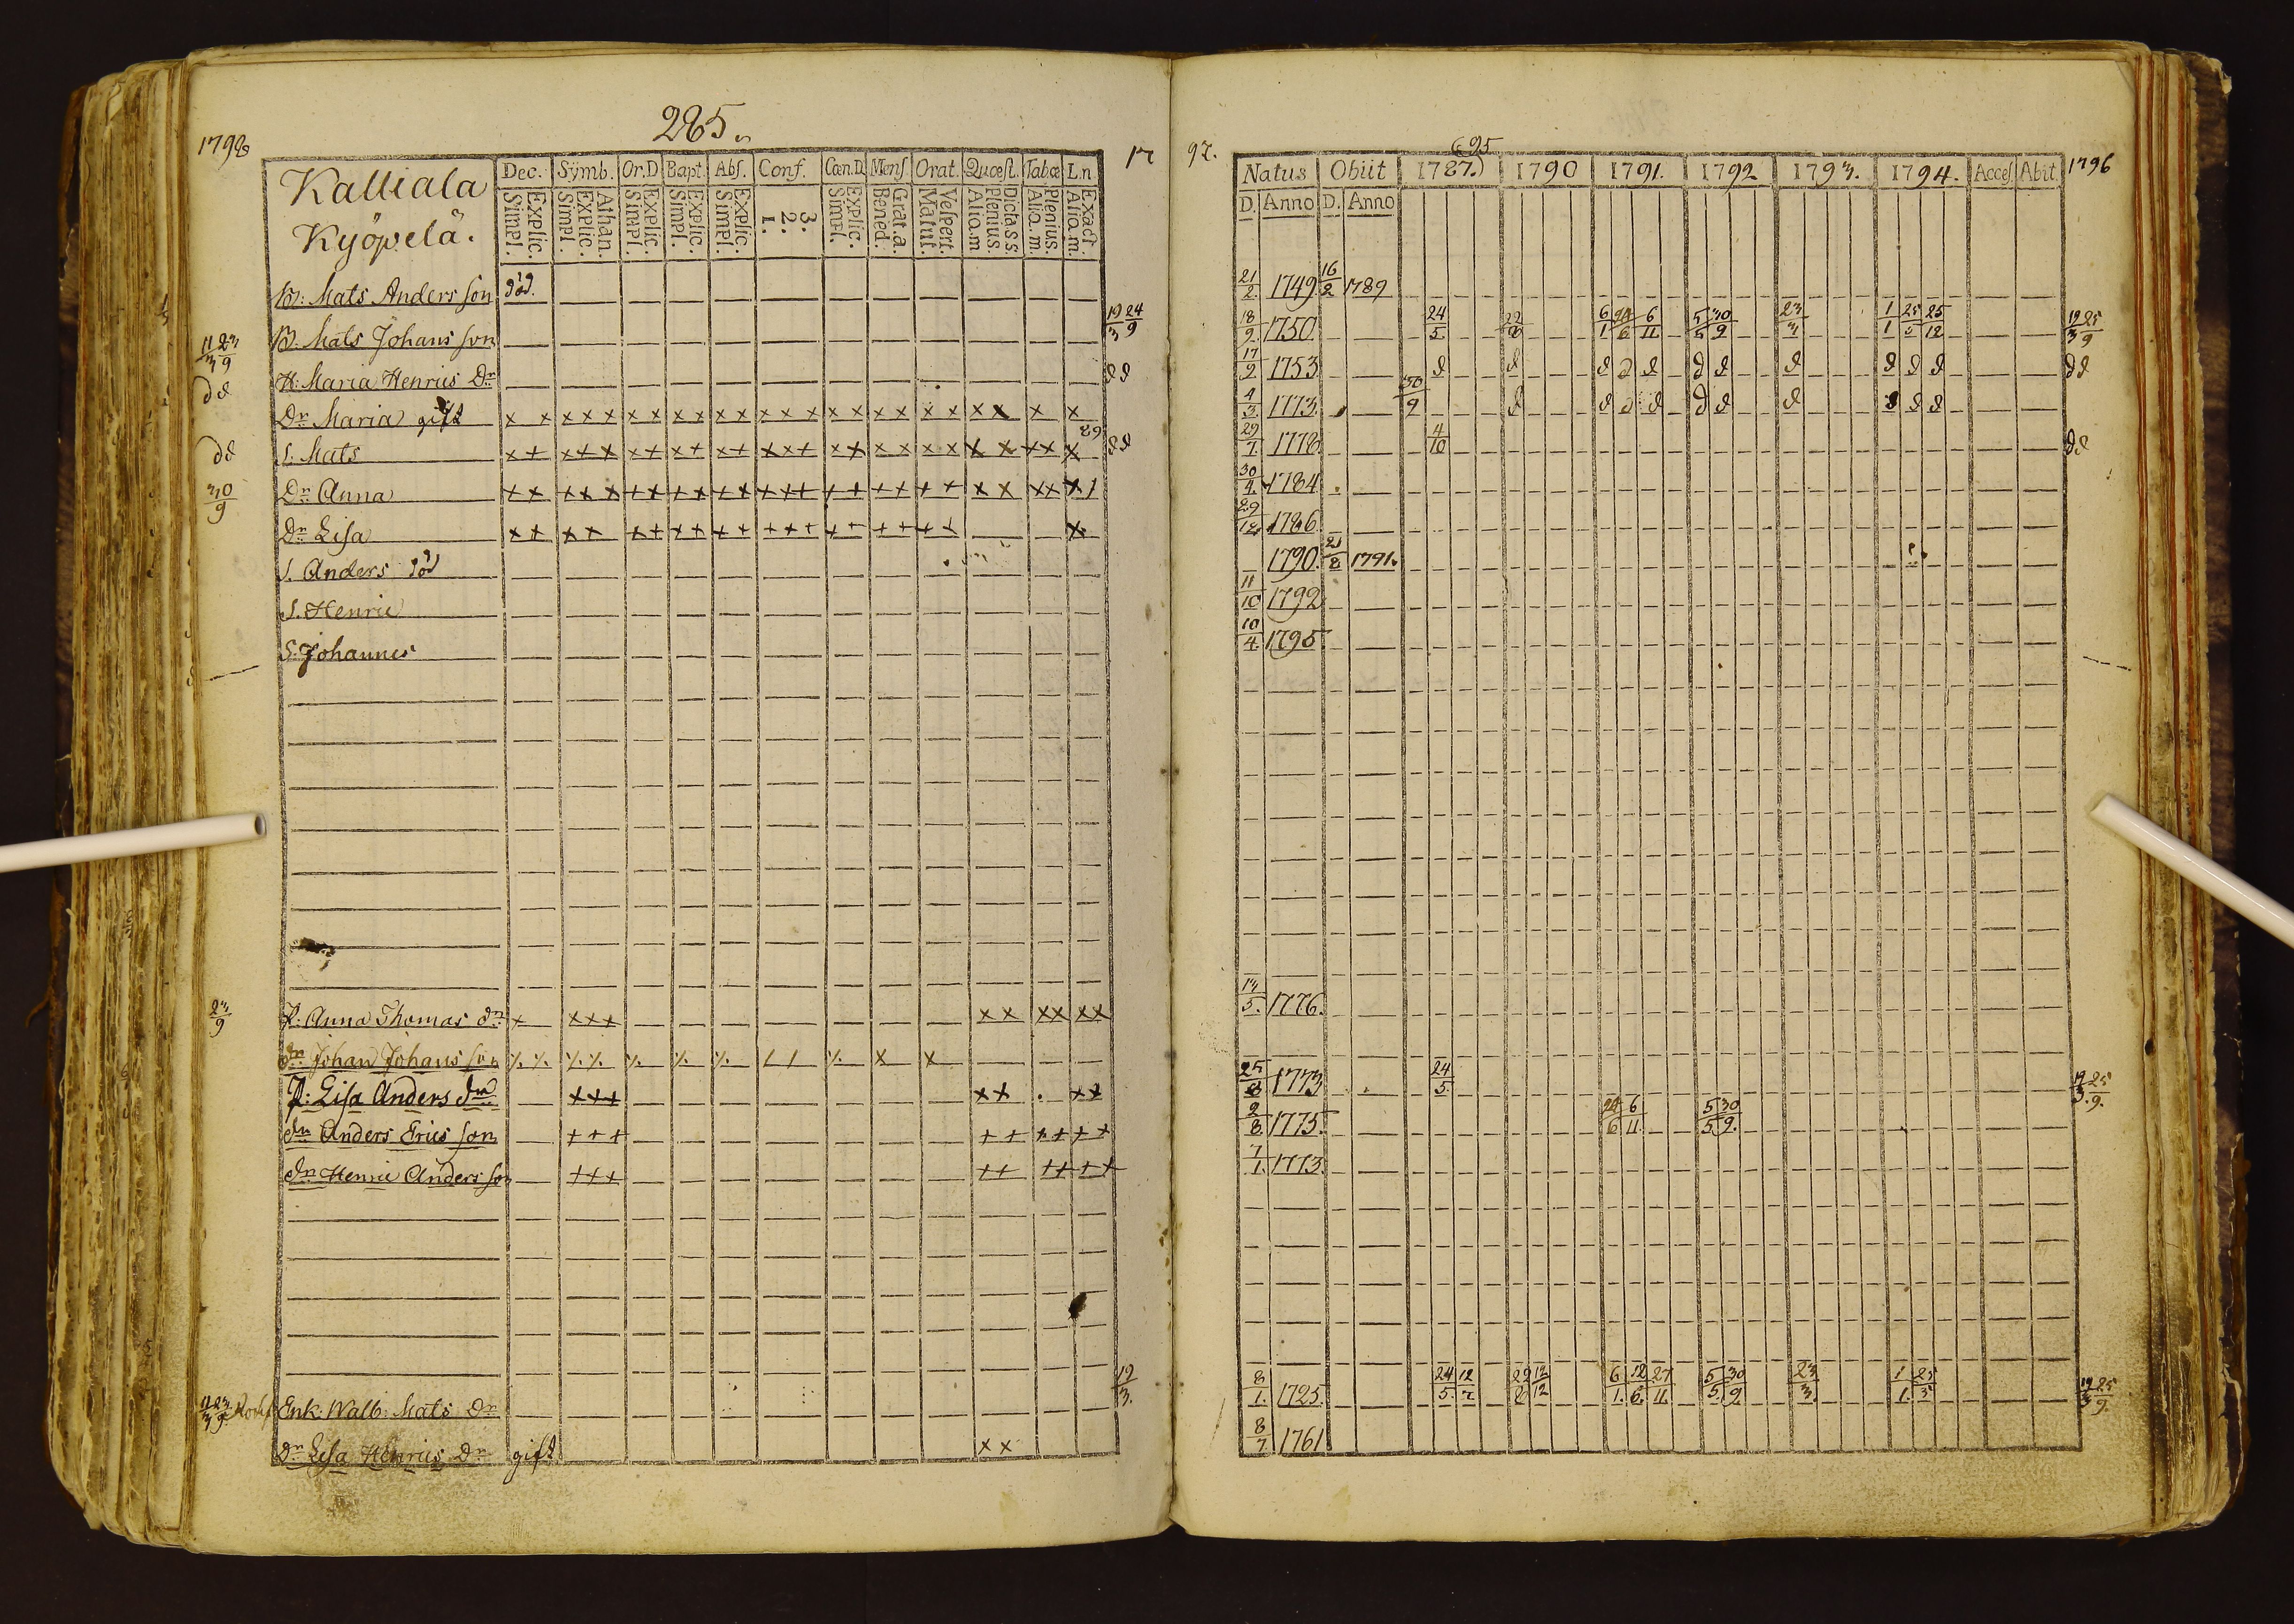 285.
1798
17
97.
695
1796
Kalliala
Kyöpelä.
Dec. Symb. Or.D Bapt. Abs. Conf. Cœn.D Mens. Orat. Quæst. Tabæ L.n.
Explic. Simpl.
Athan. Explic. Simpl.
Explic. Simpl.
Explic. Simpl.
Explic. Simpl.
3. 2. 1.
Explic. Simpl.
Grat.a. Bened.
Vespert. Matut.
Dicta s s. Plenius. Alio.m
Plenius. Alio.m.
Exact Alio.m.
Natus Obiit 1787. 1790 1791. 1792 1793. 1794. Acces Abit
D. Anno D. Anno
B: Mats Andersson död. 21/2. 1749 16/2 1789
11/3 23/9 B. Mats Johansson 19/3 24/9 18/9. 1750 24/5. 22/8 6/1 24/6 6/11 5/5 30/9 23/3 1/1 25/5 25/12 19/3 25/9
dd H: Maria Henrics Dr dd 17/2 1753 d d d d d d d d d d d dd
Dr Maria gift x x x x x x x x x x x x x x x x x x x x x x x 4/3 1773. 30/9 d d d d d d d d d d
dd S. Mats x + x + x x + x + x + x x + x x x x x x x x x x x 89 dd 29/7. 1778. 4/10 dd
30/9 Dr Anna 30/4. 1784
Dr Lisa 29/12 1786
S. Anders död 1790. 21/2 1791.
S. Henric 11/10 1792
S. Johannes 10/4. 1795
23/9 P. Anna Thomas dr x x x x x x x x x x 13/5. 1776.
dr Johan Johansson 25/8 1773 24/5. 19/3. 25/9.
P: Lisa Anders dr x x x x x . x x 2/8 1775. 24/6 6/11 5/5 30/9.
dn Anders Ericsson + + + + + + + + + 7/1. 1773.
dn Henric Andersson + + + + + + + + +
11/3 23/9 Enk. Walb: Mats Dr 19/3. 8/1. 1725. 24/5. 12/7 29/8 12/12 6/1. 12/6. 27/11 5/5. 30/9. 23/3. 1/1. 25/5 19/3 25/9.
Dr Lisa Henrics Dr gift x x 8/7 1761